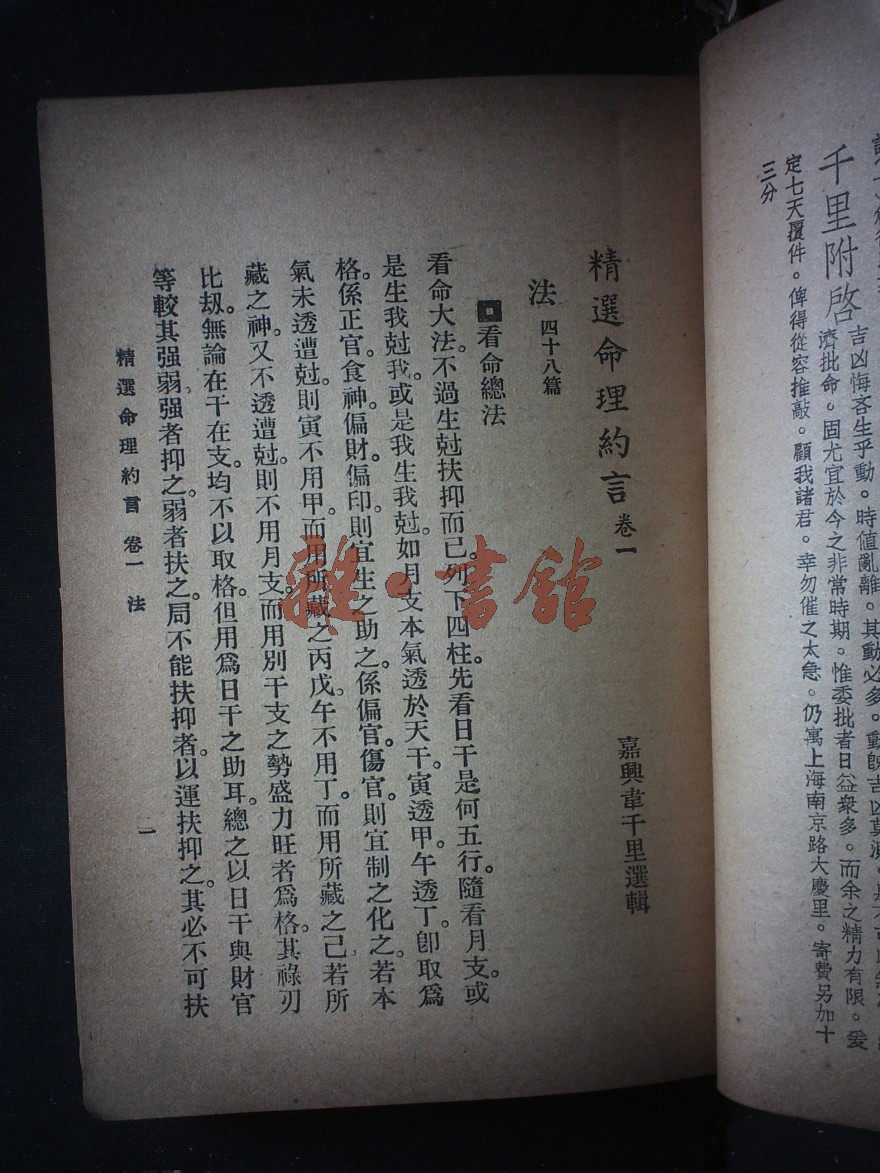 千里附啓
吉凶悔吝生乎動。時値亂離。其動必多。動
濟批命。固尤宜於今之非常時期。惟委批者日益衆多。而余之精力有限。爰
定七天覆件。俾得從容推敲。顧我諸君。幸勿催之太急。仍寓上海南京路大慶里。寄費另加十
三分
精選命理約言 卷一
嘉興韋千里選輯
法 四十八篇
看命總法
看命大法。不過生尅扶抑而已。列下四柱。先看日干是何五行。隨看月支。或
是生我尅我。或是我生我尅。如月支本氣透於天干。寅透甲。午透丁。卽取爲
格。係正官。食神。偏財。偏印。則宜生之助之。係偏官。傷官。則宜制之化之。若本
氣未透遭尅。則寅不用甲。而用所藏之丙戊。午不用丁。而用所藏之己。若所
藏之神。又不透遭尅。則不用月支。而用別干支之勢盛力旺者爲格。其祿刃
比刼。無論在干在支。均不以取格。但用爲日干之助耳。總之以日干與財官
等較其强弱。强者抑之。弱者扶之。局不能扶抑者。以運扶抑之。其必不可扶
精選命理約言 卷一 法
一
雜·書館